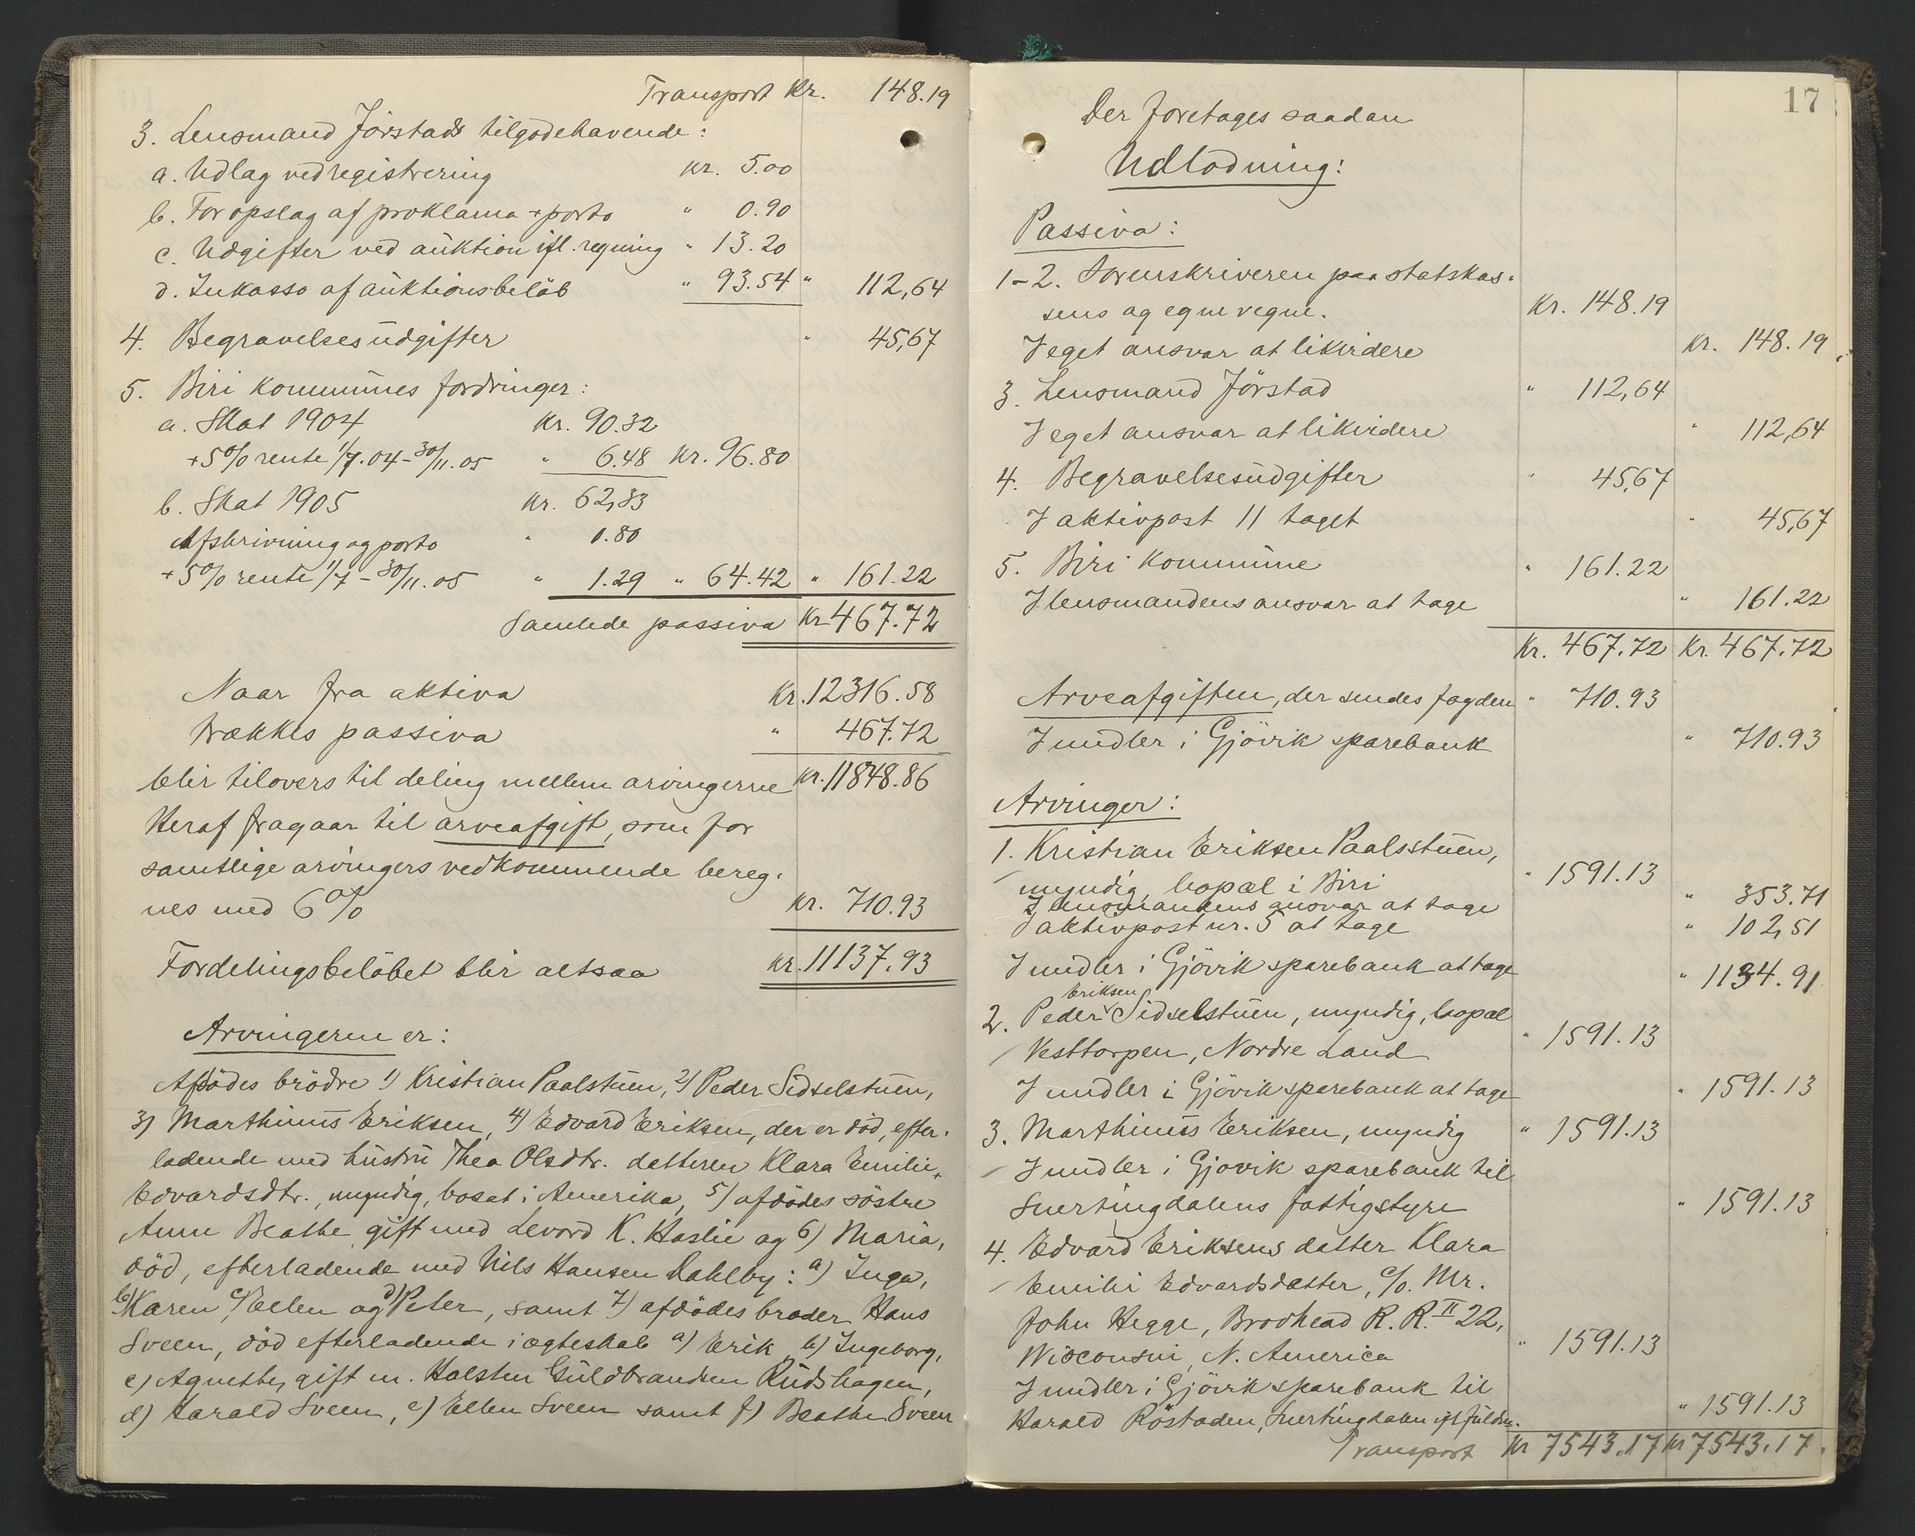 Transport Kr. 148.19
3. Lensmand Jörstads tilgodehavende:
a. Udlag ved registrering Kr. 5.00
b. For opslag af proklama + porto " 0.90
c. Udgifter ved auktion ifl. regning " 13.20
d. Inkasso af auktionsbelöb " 93.54 " 112,64
4. Begravelsesudgifter " 45,67
5. Biri kommunes fordringer:
a. Skat 1904 Kr. 90.32
+ 5% rente 1/7.04 - 30/11.05 " 6.48 Kr. 96.80
b. Skat 1905 Kr. 62,33
Afskrivning og porto " 0.80
+ 5% rente 1/7 - 30/11.05 " 1.29 " 64.42 " 161.22
Samlede passiva Kr 467.72
Naar fra aktiva Kr. 12316.58
trækkes passiva " 467.72
blir tilovers til deling mellem arvingerne Kr. 11848.86
Heraf fragaar til arveafgift, som for
samtlige arvingers vedkommende bereg-
nes med 6% Kr. 710.93
Fordelingsbelöbet blir altsaa Kr. 11137.93
Arvingerne er:
Afdödes brödre 1) Kristian Paalstuen, 2) Peder Sidselstuen,
3) Marthinus Eriksen, 4) Edvard Eriksen, der er död, efter-
ladende med hustru Thea Olsdtr. datteren Klara Emilie
Edvardsdtr., myndig, bosat i Amerika, 5) afdödes söstre
Anne Beathe gift med Levord K. Haslie og 6) Maria,
död, efterladende med Nils Hansen Dahlby: a) Inga,
b) Karen c) Ellen og d) Peter, samt 7) afdödes broder Hans
Sveen, död efterladende i ægteskab a) Erik b) Ingeborg,
c) Agnethe, gift m. Halsten Guldbrandsen Rudshagen,
d) Harald Sveen, e) Ellen Sveen samt f) Beathe Sveen
17
Der foretages saadan
Udlodning:
Passiva:
1-2. Sorenskriveren paa statskas-
sens og egne vegne. Kr. 148.19
I eget ansvar at likvidere Kr. 148.19
3. Lensmand Jörstad " 112,64
I eget ansvar at likvidere " 112,64
4. Begravelsesudgifter " 45,67
I aktivpost 11 taget " 45,67
5. Biri kommune " 161.22
I lensmandens ansvar at tage " 161.22
Kr. 467.72 Kr. 467.72
Arveafgiften, der sendes fogden " 710.93
I midler i Gjövik sparebank " 710.93
Arvinger:
1. Kristian Eriksen Paalsstuen,
myndig, bopæl i Biri " 1591.13
I lensmandens ansvar at tage " 353.71
I aktivpost nr. 5 at tage " 102,51
I midler i Gjövik sparebank at tage " 1134.91
2. Peder Eriksen Sidselstuen, myndig, bopæl
Vesttorpen, Nordre Land " 1591.13
I midler i Gjövik sparebank at tage " 1591.13
3. Marthinus Eriksen, myndig " 1591.13
I midler i Gjövik sparebank til
Snertingdalens fattigstyre " 1591.13
4. Edvard Eriksens datter Klara
Emilie Edvardsdatter, c/o. Mr.
John Hegge, Brodhead R. R. II 22,
Wisconsin, N. America " 1591.13
I midler i Gjövik sparebank til
Harald Röstaden, Snertingdalen ifl. fuldm. " 1591.13
Transport Kr 7543.17 Kr 7543.17.